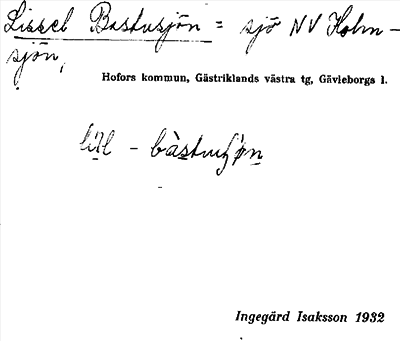 Lissel Bastusjön = sjö NV Holm-
sjön,
Hofors kommun, Gästriklands västra tg, Gävleborgs l.
lìl - bàstuʃøn
Ingegärd Isaksson 1932